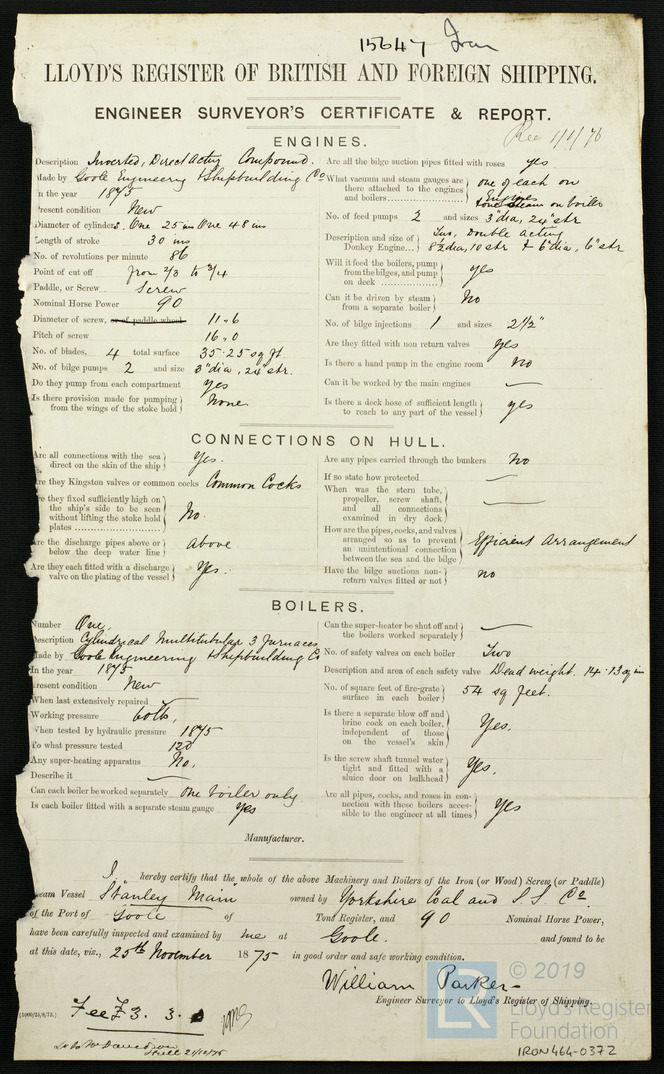 15647 Iron
LLOYD'S REGISTER OF BRITISH AND FOREIGN SHIPPING.
ENGINEER SURVEYOR'S CERTIFICATE & REPORT.
Rec 1/1/76
ENGINES.
Description Inverted, Direct Acting Compound.
Made by Goole Engineering & Shipbuilding Co
In the year 1875
Present condition New
Diameter of cylinders. One 25 ins One 48 ins
Length of stroke 30 ins
No. of revolutions per minute 86
Point of cut off from 2/3 to 3/4
Paddle, or Screw Screw
Nominal Horse Power 90
Diameter of screw, or of paddle wheel 11 " 6
Pitch of screw 16 " 0
No. of blades, 4 total surface 35.25 sq ft.
No. of bilge pumps 2 and size 3" dia, 24" str.
Do they pump from each compartment Yes
Is there provision made for pumping from the wings of the stoke hold None
Are all the bilge suction pipes fitted with roses yes
What vacuum and steam gauges are there attached to the engines and boilers one of each on Engines one steam on boiler
No. of feed pumps 2 and sizes 3" dia, 24" str
Description and size of Donkey Engine... Two, Double acting 8½ dia, 10 str & 6" dia, 6" str
Will it feed the boilers, pump from the bilges, and pump on deck yes
Can it be driven by steam from a separate boiler No
No. of bilge injections 1 and sizes 2½"
Are they fitted with non return valves Yes
Is there a hand pump in the engine room No
Can it be worked by the main engines —
Is there a deck hose of sufficient length to reach to any part of the vessel yes
CONNECTIONS ON HULL.
Are all connections with the sea direct on the skin of the ship Yes.
Are they Kingston valves or common cocks Common Cocks
Are they fixed sufficiently high on the ship's side to be seen without lifting the stoke hold plates No.
Are the discharge pipes above or below the deep water line above
Are they each fitted with a discharge valve on the plating of the vessel Yes.
Are any pipes carried through the bunkers No
If so state how protected —
When was the stern tube, propeller, screw shaft, and all connections examined in dry dock —
How are the pipes, cocks, and valves arranged so as to prevent an unintentional connection between the sea and the bilge Efficient Arrangement
Have the bilge suctions non-return valves fitted or not no
BOILERS.
Number One
Description Cylindrical Multitubular 3 Furnaces
Made by Goole Engineering & Shipbuilding Co
In the year 1875
Present condition New
When last extensively repaired —
Working pressure 60 lbs,
When tested by hydraulic pressure 1875
To what pressure tested 120
Any super-heating apparatus No,
Describe it —
Can each boiler be worked separately one boiler only
Is each boiler fitted with a separate steam gauge Yes
Can the super-heater be shut off and the boilers worked separately —
No. of safety valves on each boiler Two
Description and area of each safety valve Dead weight. 14.13 sq in
No. of square feet of fire-grate surface in each boiler 54 sq feet.
Is there a separate blow off and brine cock on each boiler, independent of those on the vessel's skin Yes.
Is the screw shaft tunnel water tight and fitted with a sluice door on bulkhead Yes.
Are all pipes, cocks, and roses in connection with these boilers accessible to the engineer at all times Yes
Manufacturer.
I hereby certify that the whole of the above Machinery and Boilers of the Iron (or Wood) Screw (or Paddle)
Steam Vessel "Stanley Main" owned by Yorkshire Coal and S.S. Co.
of the Port of Goole of Tons Register, and 90 Nominal Horse Power,
have been carefully inspected and examined by me at Goole. and found to be
at this date, viz., 25th November 1875 in good order and safe working condition.
William Parker
Engineer Surveyor to Lloyd's Register of Shipping.
Fee £3. 3. 0
Hull 21/12/75
LR © 2019
Lloyd's Register
Foundation
IRON464-0372